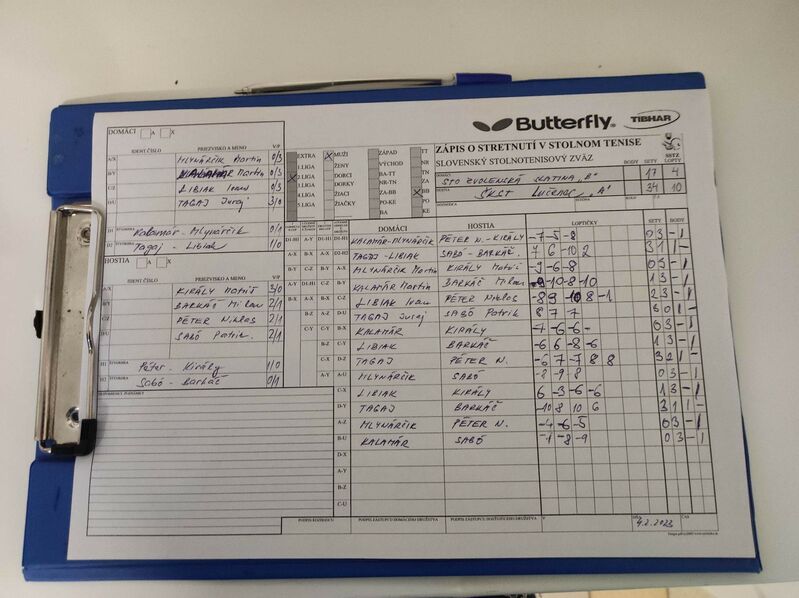 Butterfly
TIBHAR
ZÁPIS O STRETNUTÍ V STOLNOM TENISE
SLOVENSKÝ STOLNOTENISOVÝ ZVÄZ
SSTZ
BODY SETY LOPTY
STO ZVOLENSKÁ SLATINA "B" 17 4
ŠKST LUČENEC "A" 34 10
DOMÁCI A X
IDENT ČÍSLO PRIEZVISKO A MENO V/P
A/X MLYNÁRČIK Martin 0/3
B/Y KALAMÁR Martin 0/3
C/Z LIBIAK Ivan 0/3
D/U TAGAJ Juraj 3/0
D1 Kalamár - Mlynárčik 0/1
D2 Tagaj - Libiak 1/0
HOSTIA A X
IDENT ČÍSLO PRIEZVISKO A MENO V/P
A/X KIRÁLY Matúš 3/0
B/Y BARKÁČ Milan 2/1
C/Z PÉTER Nikolas 2/1
D/U SABÓ Patrik 2/1
H1 Péter - Király 1/0
H2 Sabó - Barkáč 0/1
EXTRA X MUŽI ZÁPAD TT
1.LIGA ŽENY VÝCHOD NR
X 2.LIGA DORCI BA-TT TN
3.LIGA DORKY NR-TN ZA
4.LIGA ŽIACI ZA-BB X BB
5.LIGA ŽIAČKY PO-KE PO
BA KE
DOMÁCI HOSTIA LOPTIČKY SETY BODY
KALAMÁR-MLYNÁRČIK PÉTER N.-KIRÁLY -7 -5 -8 0 3 - 1
TAGAJ-LIBIAK SABÓ-BARKÁČ 7 6 -10 2 3 1 1 -
MLYNÁRČIK Martin KIRÁLY Matúš -9 -6 -8 0 3 - 1
KALAMÁR Martin BARKÁČ Milan -9 -10 8 -10 1 3 - 1
LIBIAK Ivan PÉTER Nikolas -8 9 10 8 -1 2 3 - 1
TAGAJ Juraj SABÓ Patrik 8 7 7 3 0 1 -
KALAMÁR KIRÁLY -7 -6 -6 0 3 - 1
LIBIAK BARKÁČ -6 6 -8 -6 1 3 - 1
TAGAJ PÉTER N. -6 7 -7 8 8 3 2 1 -
MLYNÁRČIK SABÓ -8 -9 -8 0 3 - 1
LIBIAK KIRÁLY 6 -3 -6 -6 1 3 - 1
TAGAJ BARKÁČ -10 8 10 6 3 1 1 -
MLYNÁRČIK PÉTER N. -4 -6 -5 0 3 - 1
KALAMÁR SABÓ -1 -8 -9 0 3 - 1
PODPIS ROZHODCU PODPIS ZÁSTUPCU DOMÁCEHO DRUŽSTVA PODPIS ZÁSTUPCU HOSŤUJÚCEHO DRUŽSTVA V DŇA 4.2.2023 ČAS